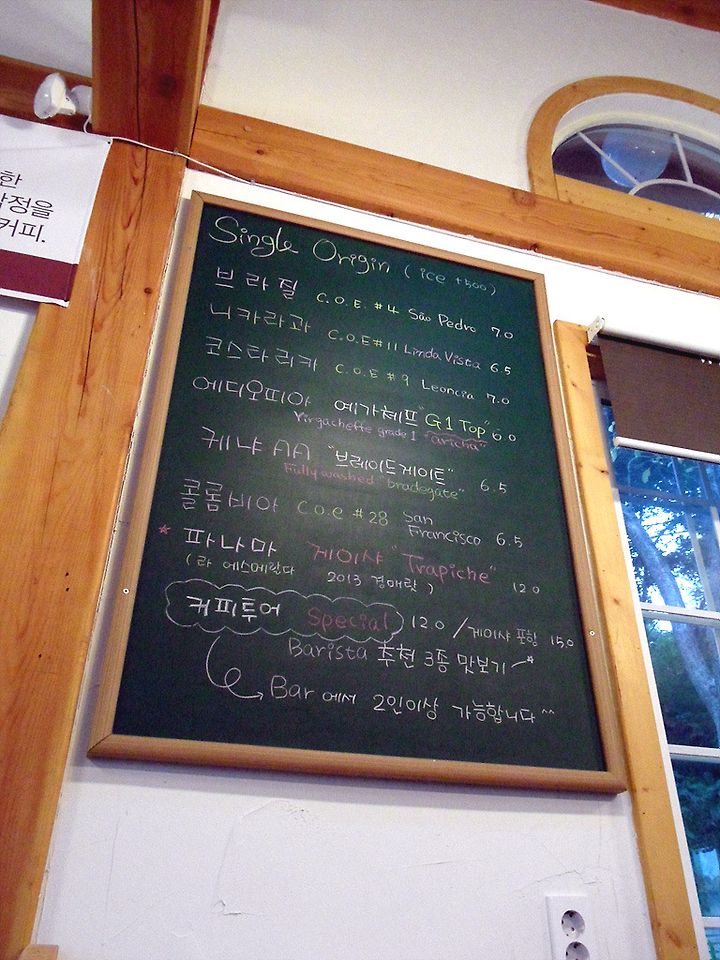 한
작정을
커피.
Single Origin (ice +500)
브라질 C.O.E. #4 São Pedro 7.0
니카라과 C.O.E #11 Linda Vista 6.5
코스타리카 C.O.E #9 Leoncia 7.0
에디오피아 예가체프 "G1 Top" 6.0
Yirgacheffe grade 1 "aricha"
케냐 AA "브레이드게이트" 6.5
Fully washed "bradegate"
콜롬비아 C.O.E #28 San Francisco 6.5
* 파나마 게이샤 "Trapiche" 12.0
(라 에스메랄다 2013 경매랏)
커피투어 Special 12.0 / 게이샤 포함 15.0
Barista 추천 3종 맛보기
Bar 에서 2인이상 가능합니다 ^^